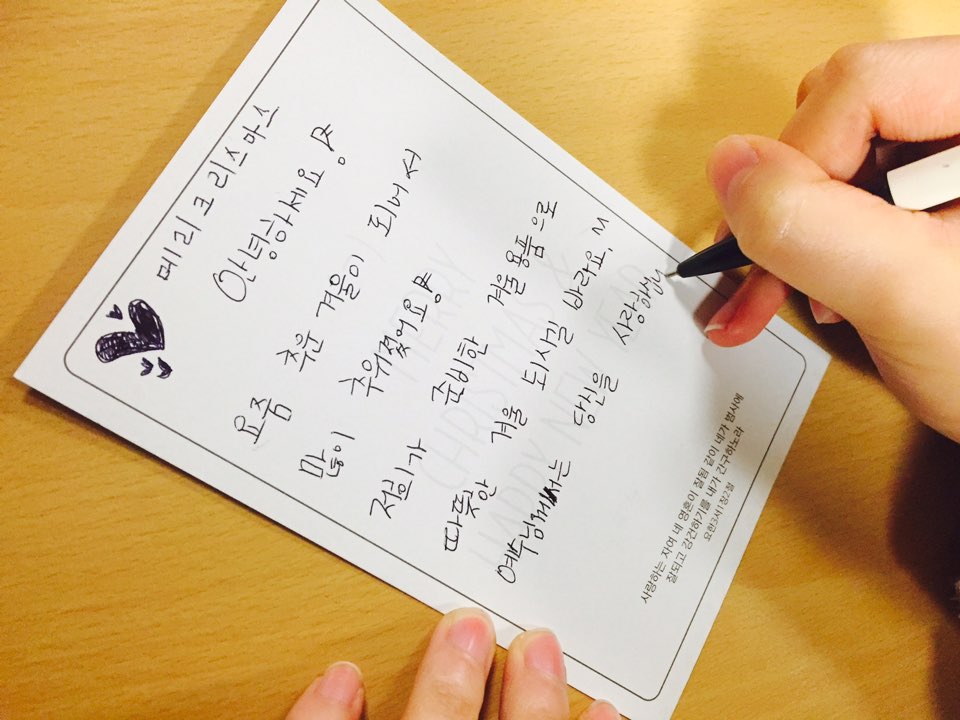 메리크리스마스
안녕하세요!
요즘 추운 겨울이 되어서
많이 추워졌어요!
저희가 준비한 겨울 용품으로
따뜻안 겨울 되시길 바라요. M
예수님께서는 당신을 사랑하십니
MERRY
CHRISTMAS &
HAPPY NEW YEAR
사랑하는 자여 네 영혼이 잘됨 같이 네가 범사에
잘되고 강건하기를 내가 간구하노라
요한3서1장2절